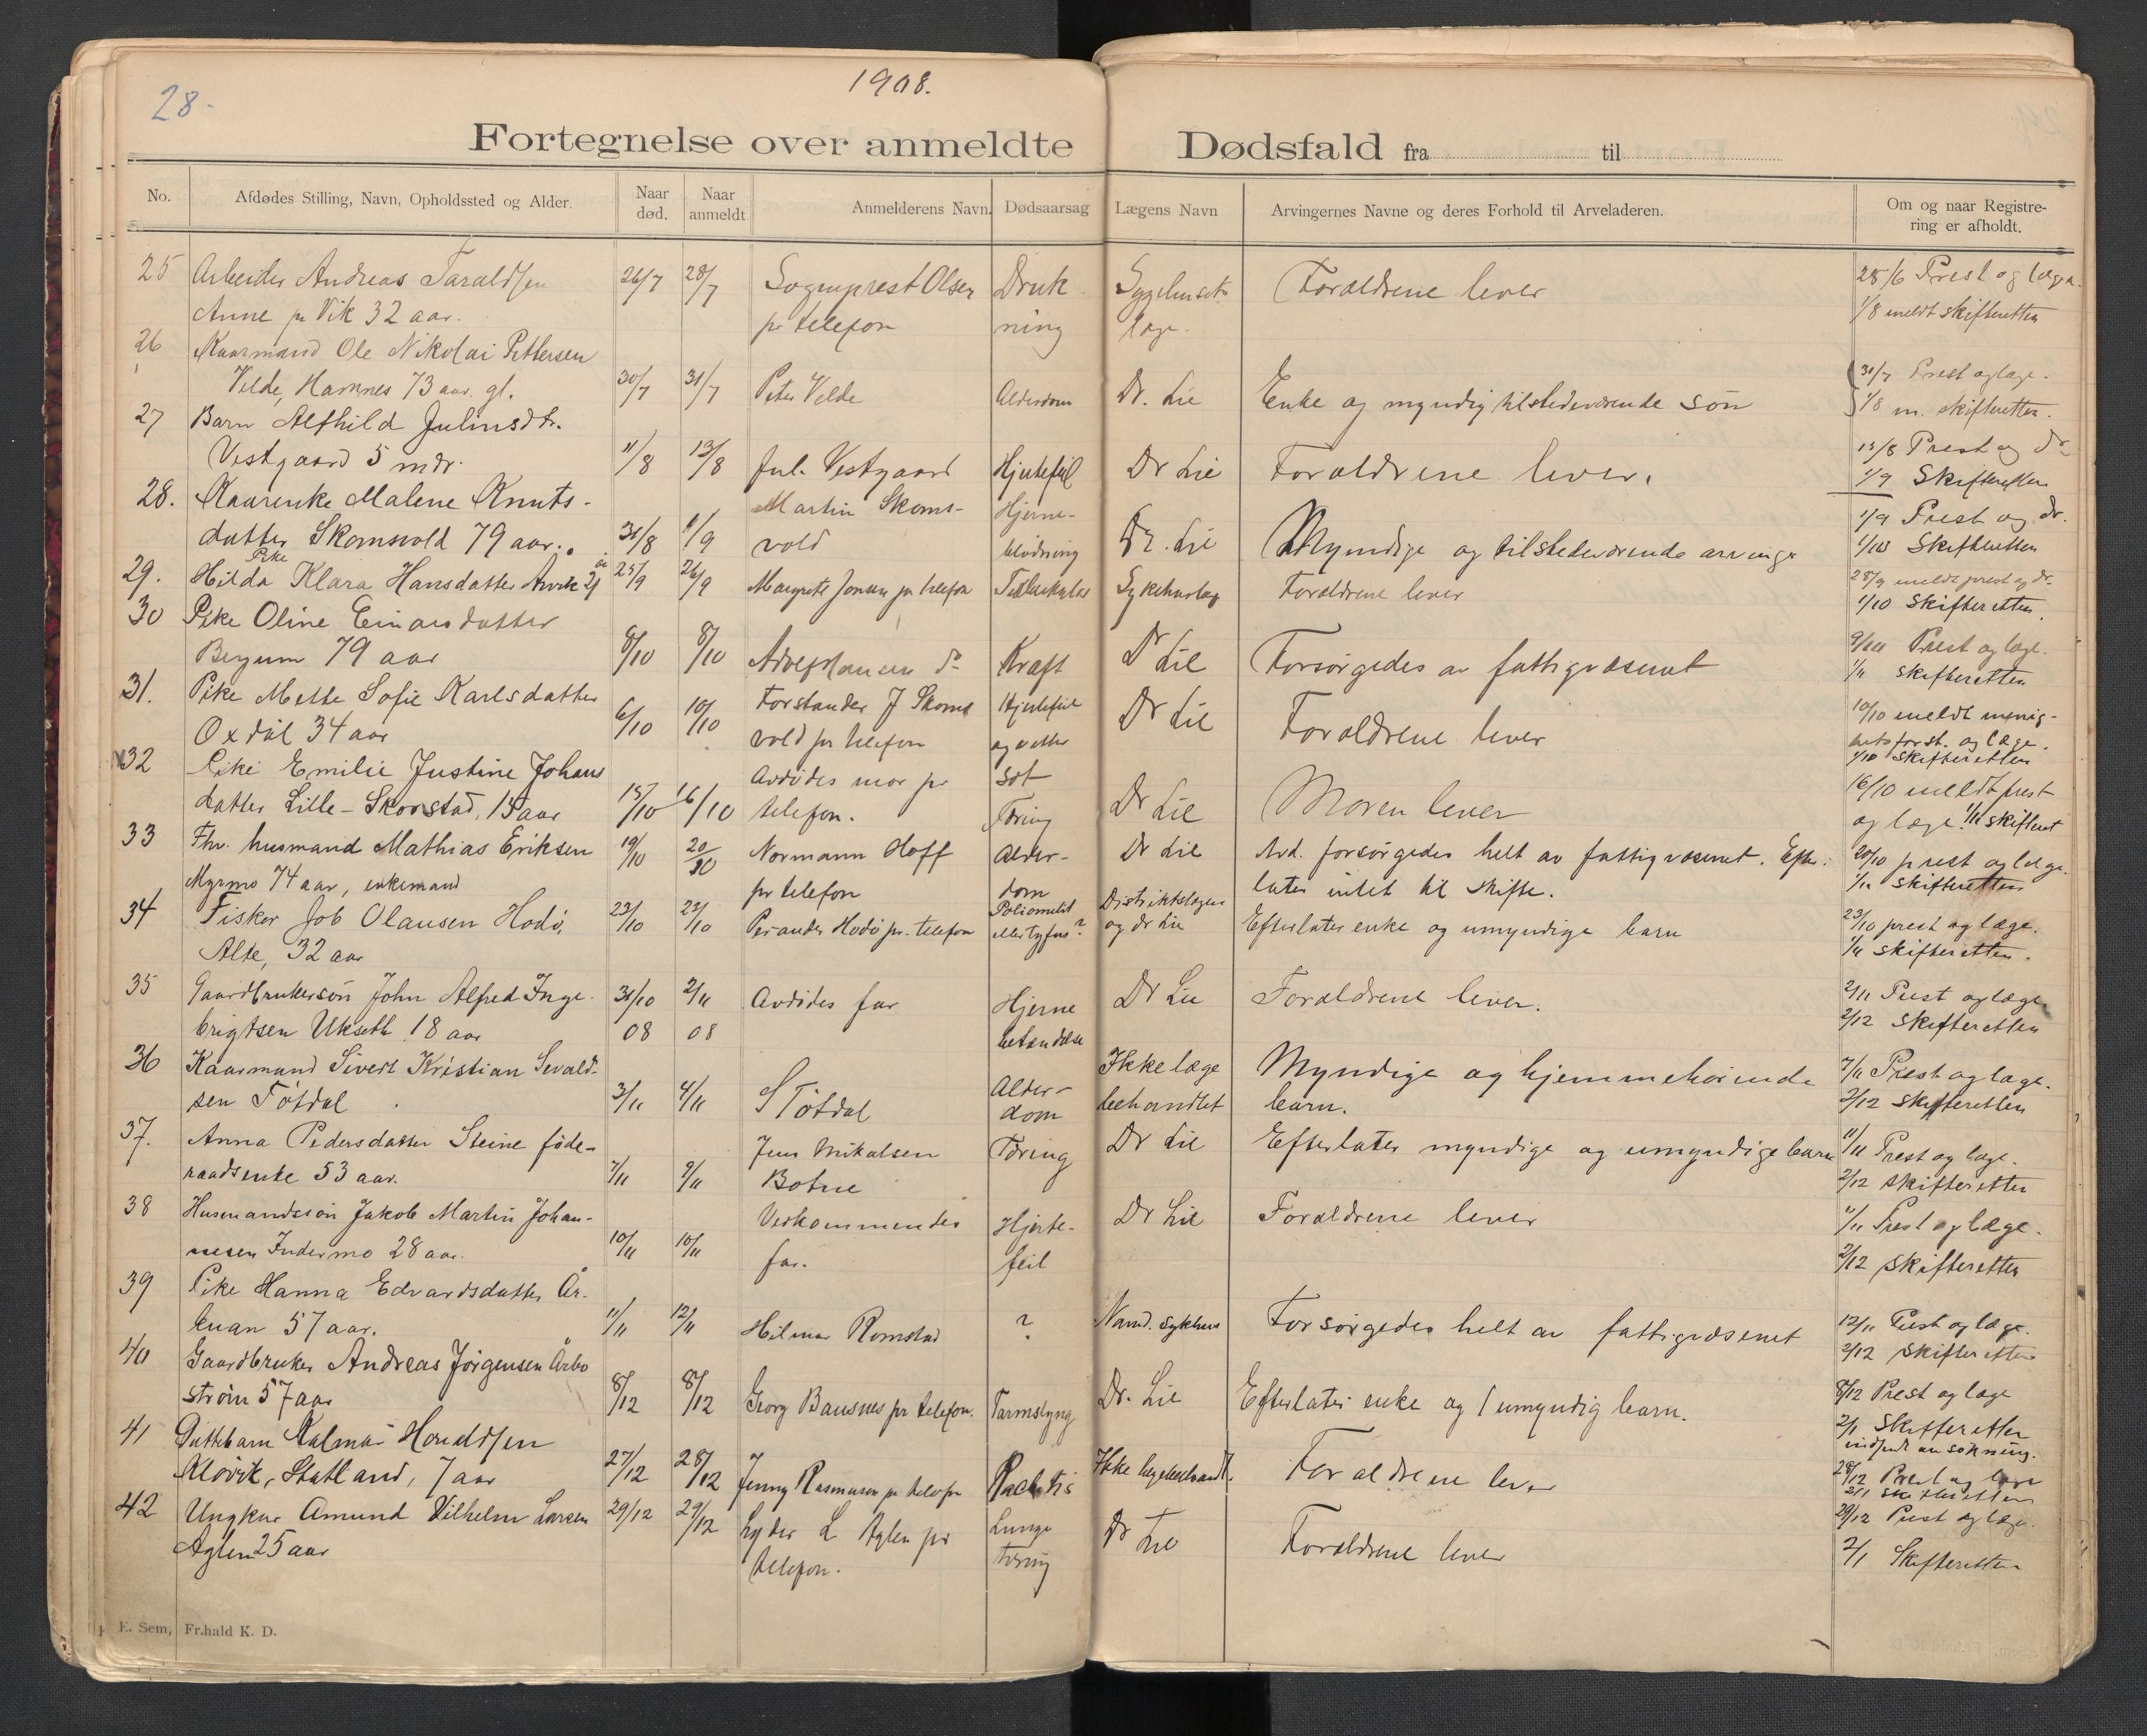 28-
1908.
Fortegnelse over anmeldte Dødsfald fra til
No. Afdødes Stilling, Navn, Opholdssted og Alder. Naar død. Naar anmeldt Anmelderens Navn. Dødsaarsag Lægens Navn Arvingernes Navne og deres Forhold til Arveladeren. Om og naar Registre-
ring er afholdt.
25 Arbeider Andreas Taraldsen 26/7 28/7 Sogneprest Olsen Druk Sygehusets Forældrene lever 28/6 Prest og læge.
Anne pr Vik 32 aar. pr telefon ning læge. 1/8 meldt skifteretten
26 Kaarmand Ole Nikolai Pettersen
Velde, Hamnes 73 aar gl. 30/7 31/7 Peter Velde Alderdom Dr. Lie Enke og myndig tilstedeværende søn 31/7 Prest og læge.
1/8 m. skifteretten.
27 Barn Alfhild Juliusdtr.
Vestgaard 5 mdr. 11/8 13/8 Jul. Vestgaard Hjertefeil Dr Lie Forældrene lever. 13/8 Prest og Dr
1/9 Skifteretten
28. Kaarenke Malene Knuts- Martin Skoms- Hjerne- 1/9 Prest og dr.
datter Skomsvold 79 aar. 31/8 1/9 vold blødning Dr. Lie Myndige og tilstedeværende arvinge 1/10 Skifteretten
Pike
29. Hilda Klara Hansdatter 25/9 26/9 Margrete Jonsen pr telefon Tuberkulos Sykehuslæge Forældrene lever 28/9 meldt prest og dr.
1/10 skifteretten.
30 Pike Oline Einarsdatter
Bergum 79 aar 8/10 8/10 Adolf Hansen do Kræft Dr Lie Forsørgedes av fattigvæsenet 9/10 Prest og læge.
1/11 skifteretten
31. Pike Mette Sofie Karlsdatter 6/10 10/10 Forstander J Skoms Hjertefeil Dr Lie Forældrene lever 10/10 meldt menig-
Oxdal 34 aar vold pr telefon og vatter hetsforst. og læge.
1/10 skifteretten
32 Pike Emilie Justine Johans Avdødes mor pr sot 16/10 meldt prest
datter Lille-Skorstad, 15 aar 15/10 16/10 telefon. Tæring Dr Lie Moren lever og læge. 1/11 skifteret
33 Fhv. husmand Mathias Eriksen 19/10 20/10 Normann Hoff Alder- Dr Lie Avd. forsørgedes helt av fattigvæsenet. Efter- 20/10 prest og læge.
Myrmo 74 aar, enkemand pr telefon dom later intet til skifte. 1/11 skifteretten
34 Fisker Job Olausen Hodø, 23/10 23/10 Per ander Hodø pr. telefon Poliomelit Distriktslægen Efterlater enke og umyndige barn 23/10 prest og læge.
Alte, 32 aar eller tyfus? og dr Lie 1/11 skifteretten.
35 Gaardbrukersøn John Alfred Inge- 31/10 2/11 Avdødes far Hjerne Dr Lie Forældrene lever. 2/11 Prest og læge.
brigtsen Ukseth 18 aar 08 08 betændelse 2/12 skifteretten
36 Kaarmand Sivert Kristian Sevald- Ikke læge Myndige og hjemmehørende 7/11 Prest og læge.
sen Føtdal 3/11 4/11 S Føtdal Alder-dom behandlet barn. 2/12 skifteretten
37. Anna Pedersdatter Steine føde- Jens Mikalsen Tæring Dr Lie Efterlater myndige og umyndige barn 11/11 Prest og læge.
raadsenke 53 aar. 7/11 9/11 Botne 2/12 skifteretten
38 Husmandssøn Jakob Martin Johan- Vedkommendes Hjerte- Dr Lie Forældrene lever 11/11 Prest og læge.
nesen Indermo 28 aar. 10/11 10/11 far. feil 2/12 skifteretten
39 Pike Hanna Edvardsdatter Ar-
kvan 57 aar. 11/11 12/11 Hilmar Romstad ? Namd. sykehus Forsørgedes helt av fattigvæsenet 12/11 Prest og læge.
2/12 skifteretten
40 Gaardbruker Andreas Jørgensen Arbo
strøm 57 aar 8/12 8/12 Georg Bausnes pr telefon. Tarmslyng Dr. Lie Efterlater enke og 1 umyndig barn. 8/12 Prest og læge
2/1 Skifteretten
indsendt ansøkning.
41 Guttebarn Kalmar
Kløvik, Statland, 7 aar 27/12 28/12 Jenny Rasmusen pr telefon Rachitis Ikke lægebehandl. Forældrene lever 28/12 Prest og læge
2/1 skifteretten
42 Ungkar Amund Vilhelm Larsen 29/12 29/12 Lyder L Aglen pr Lunge Dr Lie Forældrene lever 29/12 Prest og læge.
Aglen 25 aar telefon. tæring 2/1 Skifteretten
E. Sem, Fr.hald K. D.